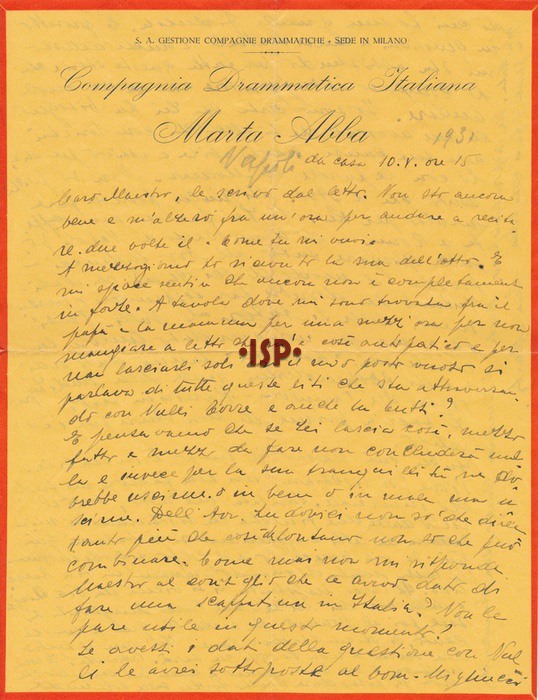 S. A. GESTIONE COMPAGNIE DRAMMATICHE - SEDE IN MILANO
Compagnia Drammatica Italiana
Marta Abba
1931
Napoli
da casa 10.V. ore 15
Caro Maestro, le scrivo dal letto. Non sto ancora
bene e m'alzerò fra un'ora per andare a recita
re due volte il: Come tu mi vuoi.
A mezzogiorno ho ricevuto la sua dell'otto. E
mi spiace sentire che ancora non è completamente
in forze. A tavola dove mi sono trovata fra il
papà e la mamma per una mezz'ora per non
mangiare a letto che è così antipatico e per
non lasciarli soli il mio posto vuoto si
parlava di tutte queste liti che sta attraversan
do con Nulli Torre e anche la Curti?
E pensavamo che se Lei lascia così, mezzo
fatto e mezzo da fare non concluderà nul
la e invece per la sua tranquillità ne do
vrebbe uscirne. o in bene o in male ma u
scirne. Dell'Avv. Ludovici non so che dire
tanto più che così lontano non so che può
combinare. Come mai non mi risponde
Maestro al consiglio che le avevo dato di
fare una scappatina in Italia? Non le
pare utile in questo momento?
Se avessi i dati della questione con Nul
li le avrei sottoposte al com.
·ISP·